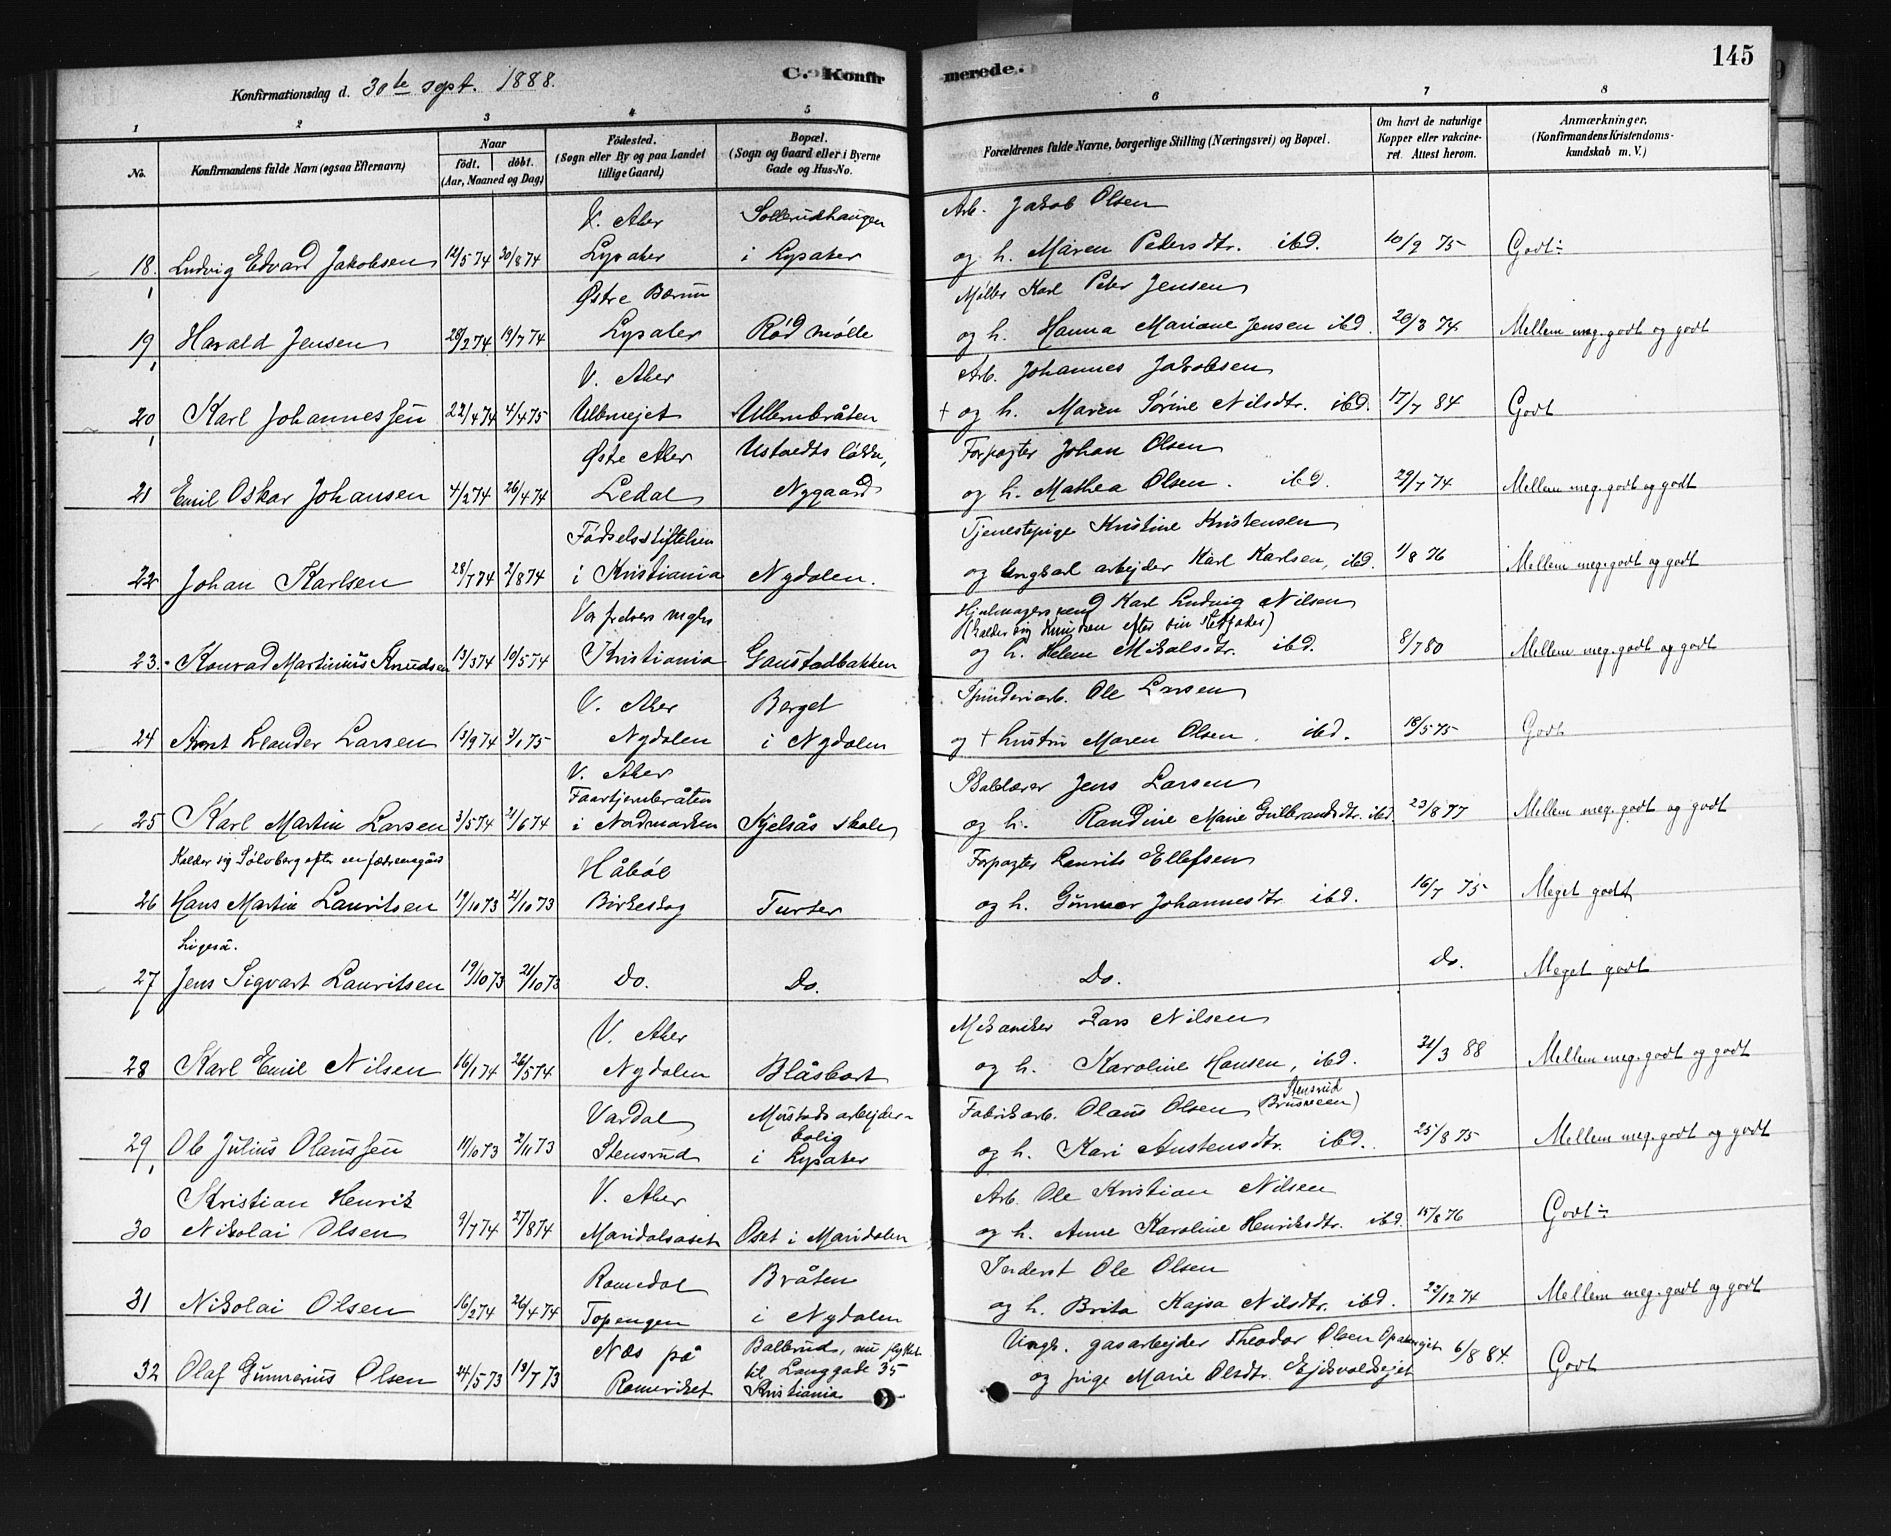 145
C. Konfirmerede.
Konfirmationsdag d. 30te sept. 1888.
1 2 3 4 5 6 7 8
No. Konfirmandens fulde Navn (ogsaa Efternavn) Naar födt. döbt. (Aar, Maaned og Dag) Födested. (Sogn eller By og paa Landet tillige Gaard) Bopæl. (Sogn og Gaard eller i Byerne Gade og Hus-No. Forældrenes fulde Navne, borgerlige Stilling (Næringsvei) og Bopæl. Om havt de naturlige Kopper eller vakcineret. Attest herom. Anmærkninger. (Konfirmandens Kristendomskundskab m. V.)
V. Aker Sollerudhaugen Arb. Jakob Olsen
18. Ludvig Edvard Jakobsen 12/5 74 30/8 74 Lysaker i Lysaker og h. Maren Petersdtr. ibd. 10/9 75 Godt÷
Østre Bærum Møller Karl Peter Jensen
19 Harald Jensen 28/2 74 19/7 74 Lysaker Rød mølle og h. Hanna Mariane Jensen ibd. 20/3 74 Mellem meg. godt og godt
V. Aker Arb. Johannes Jakobsen
20 Karl Johannessen 22/4 74 4/4 75 Ullernejet Ullernbråten + og h. Maren Sørine Nilsdtr. ibd. 17/7 84 Godt
Østre Aker Ustvedts løkke, Forpagter Johan Olsen
21 Emil Oskar Johansen 4/2 74 26/4 74 Ledal Nygaard og h. Mathea Olsen. ibd. 29/7 74 Mellem meg. godt og godt
Fødselsstiftelsen Tjenestepige Kristine Kristensen
22 Johan Karlsen 28/7 74 2/8 74 i Kristiania Nydalen. og Ungkarl arbejder Karl Karlsen, ibd. 1/8 76 Mellem meg. godt og godt
Vor frelsers mghs Hjulmagersvend Karl Ludvig Nilsen
(kalder sig Knudsen efter sin stedfader)
23. Konrad Martinius Knudsen 13/3 74 10/5 74 Kristiania Gaustadbakken og h. Helene Mikalsdtr. ibd. 8/7 80 Mellem meg. godt og godt
V. Aker Berget Spinderiarb. Ole Larsen
24 Leander Larsen 13/9 74 3/1 75 Nydalen i Nydalen og + hustru Maren Olsen. ibd. 18/5 75 Godt
V. Aker
Faartjernbråten Skolelærer Jens Larsen
25 Karl Martin Larsen 3/5 74 21/6 74 i Nordmarken Kjelsås skole og h. Randine Marie Gulbrandsdtr. ibd 23/8 77 Mellem meg. godt og godt
Kalder sig Sølvberg efter en fædrenegård Håbøl Forpagter Laurits Ellefsen
26 Hans Martin Lauritsen 19/10 73 21/10 73 Birkeskog Turter og h. Gunnor Johannesdtr. ibd. 16/7 75 Meget godt
Ligeså.
27 Jens Sigvart Lauritsen 19/10 73 21/10 73 Do. Do. Do. Do. Meget godt
V. Aker Mekaniker Lars Nilsen
28 Karl Emil Nilsen 16/1 74 26/5 74 Nydalen Blåsbort og h. Karoline Hansen, ibd. 21/3 88 Mellem meg. godt og godt
Vardal Mustads arbejderbolig Fabrikarb. Olaus Olsen (Stensrud
29 Ole Julius Olaussen 11/10 73 2/11 73 Stensrud i Lysaker og h. Kari Austensdtr. ibd. 25/8 75 Mellem meg. godt og godt
Kristian Henrik V. Aker Arb. Ole Kristian Nilsen
30 Nikolai Olsen 9/7 74 27/8 74 Maridalsoset Oset i Maridalen og h. Anne Karoline Henriksdtr. ibd. 15/8 76 Godt÷
Romedal Bråten Inderst Ole Olsen
31 Nikolai Olsen 16/2 74 26/4 74 Topengen i Nydalen og h. Brita Kajsa Nilsdtr. ibd. 23/12 74 Mellem meg. godt og godt
Næs på Ballerud, nu flyttet Ungk. gasarbejder Theodor Olsen
32 Olaf Gunnerius Olsen 24/5 73 13/7 73 Romeriket til Langgade 35 Kristiania og pige Marie Olsdtr. Ejdsvoldsejet 6/8 84. Godt